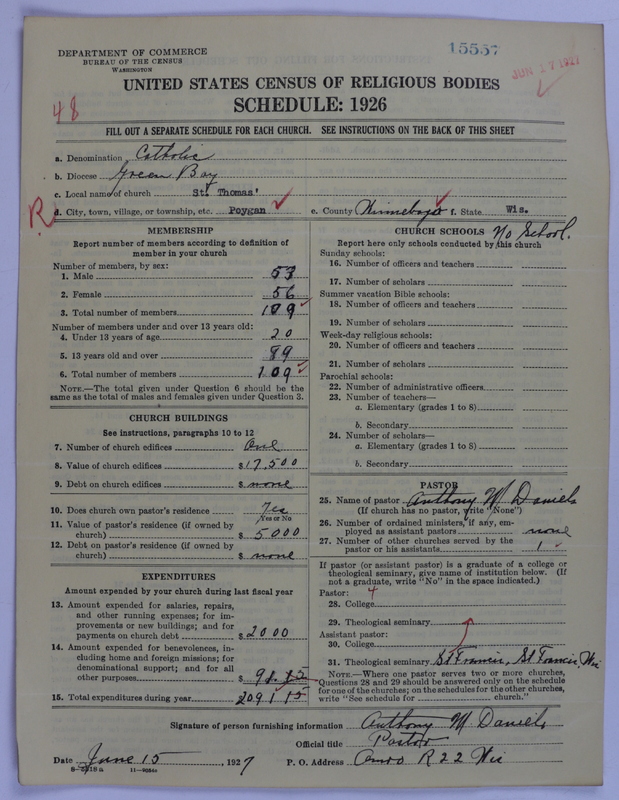 DEPARTMENT OF COMMERCE
BUREAU OF THE CENSUS
WASHINGTON
15557
JUN 17 1927
UNITED STATES CENSUS OF RELIGIOUS BODIES
SCHEDULE: 1926
48
FILL OUT A SEPARATE SCHEDULE FOR EACH CHURCH. SEE INSTRUCTIONS ON THE BACK OF THIS SHEET
a. Denomination Catholic
b. Diocese Green Bay
c. Local name of church St. Thomas'
R
d. City, town, village, or township, etc. Poygan e. County Winnebago f. State Wis.
MEMBERSHIP
Report number of members according to definition of member in your church
Number of members, by sex:
1. Male 53
2. Female 56
3. Total number of members 109
Number of members under and over 13 years old:
4. Under 13 years of age 20
5. 13 years old and over 89
6. Total number of members 109
NOTE.—The total given under Question 6 should be the same as the total of males and females given under Question 3.
CHURCH BUILDINGS
See instructions, paragraphs 10 to 12
7. Number of church edifices One
8. Value of church edifices $17,500
9. Debt on church edifices $ none
10. Does church own pastor's residence Yes
Yes or No
11. Value of pastor's residence (if owned by church) $ 5000
12. Debt on pastor's residence (if owned by church) $ none
EXPENDITURES
Amount expended by your church during last fiscal year
13. Amount expended for salaries, repairs, and other running expenses; for improvements or new buildings; and for payments on church debt $2000
14. Amount expended for benevolences, including home and foreign missions; for denominational support; and for all other purposes $
15. Total expenditures during year 2091 15
CHURCH SCHOOLS No School.
Report here only schools conducted by this church
Sunday schools:
16. Number of officers and teachers
17. Number of scholars
Summer vacation Bible schools:
18. Number of officers and teachers
19. Number of scholars
Week-day religious schools:
20. Number of officers and teachers
21. Number of scholars
Parochial schools:
22. Number of administrative officers
23. Number of teachers—
a. Elementary (grades 1 to 8)
b. Secondary
24. Number of scholars—
a. Elementary (grades 1 to 8)
b. Secondary
PASTOR
25. Name of pastor Anthony M Daniels
(If church has no pastor, write "None")
26. Number of ordained ministers, if any, employed as assistant pastors none
27. Number of other churches served by the pastor or his assistants 1
If pastor (or assistant pastor) is a graduate of a college or theological seminary, give name of institution below. (If not a graduate, write "No" in the space indicated.)
Pastor: 4
28. College
29. Theological seminary
Assistant pastor:
30. College
31. Theological seminary St Francis, St Francis, Wis
NOTE.—Where one pastor serves two or more churches, Questions 28 and 29 should be answered only on the schedule for one of the churches; on the schedules for the other churches, write "See schedule for church."
Signature of person furnishing information Anthony M Daniels
Official title Pastor
Date June 15, 1927 P. O. Address Omro R 22 Wis